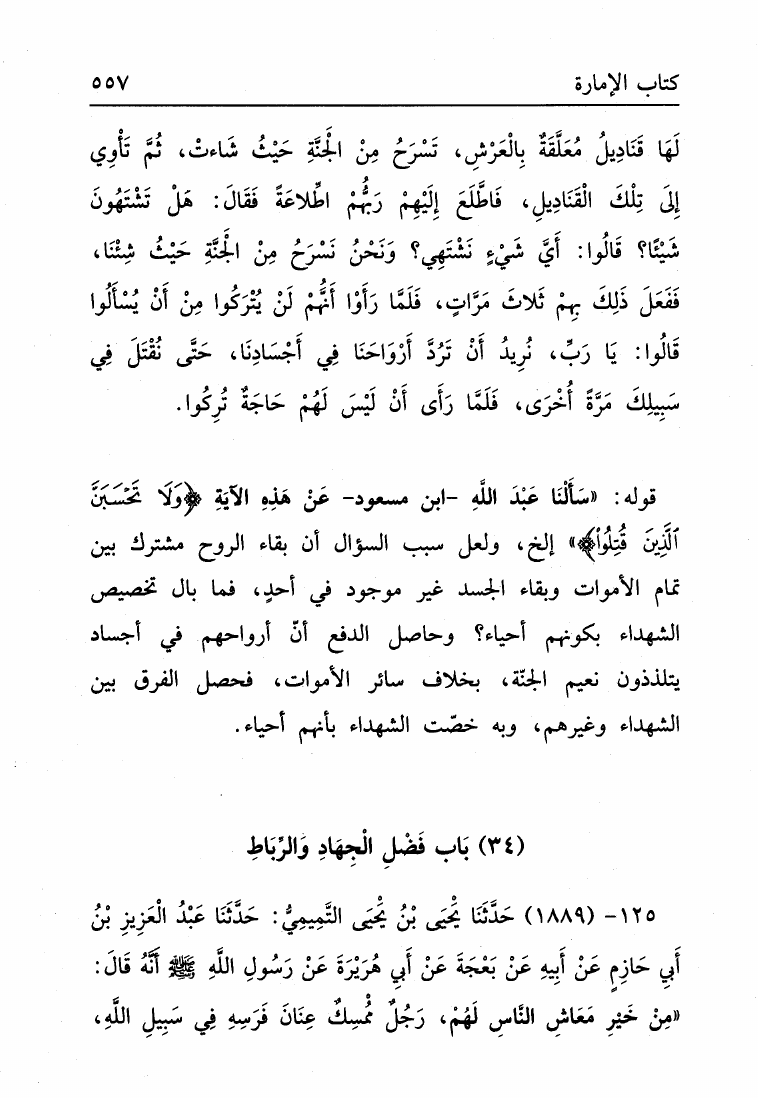 كتاب الإمارة ٥٥٧
لَهَا قَنَادِيلُ مُعَلَّقَةٌ بِالْعَرْشِ، تَسْرَحُ مِنْ الْجَنَّةِ حَيْثُ شَاءتْ، ثُمَّ تَأْوِي
إِلَى تِلْكَ الْقَنَادِيلِ، فَاطَّلَعَ إِلَيْهِمْ رَبُّهُمْ اطِّلاعَةً فَقَالَ: هَلْ تَشْتَهُونَ
شَيْئًا؟ قَالُوا: أَيَّ شَيْءٍ نَشْتَهِي؟ وَنَحْنُ نَسْرَحُ مِنْ الْجَنَّةِ حَيْثُ شِئْنَا،
فَفَعَلَ ذَلِكَ بِهِمْ ثَلاثَ مَرَّاتٍ، فَلَمَّا رَأَوْا أَنَّهُمْ لَنْ يُتْرَكُوا مِنْ أَنْ يُسْأَلُوا
قَالُوا: يَا رَبِّ، نُرِيدُ أَنْ تَرُدَّ أَرْوَاحَنَا فِي أَجْسَادِنَا، حَتَّى نُقْتَلَ فِي
سَبِيلِكَ مَرَّةً أُخْرَى، فَلَمَّا رَأَى أَنْ لَيْسَ لَهُمْ حَاجَةٌ تُرِكُوا.
قوله: «سَأَلْنَا عَبْدَ اللَّهِ -ابن مسعود- عَنْ هَذِهِ الآيَةِ ﴿وَلَا تَحْسَبَنَّ
ٱلَّذِينَ قُتِلُواْ﴾» إلخ، ولعل سبب السؤال أن بقاء الروح مشترك بين
تمام الأموات وبقاء الجسد غير موجود في أحدٍ، فما بال تخصيص
الشهداء بكونهم أحياء؟ وحاصل الدفع أنّ أرواحهم في أجساد
يتلذذون نعيم الجنّة، بخلاف سائر الأموات، فحصل الفرق بين
الشهداء وغيرهم، وبه خصّت الشهداء بأنهم أحياء.
(٣٤) بَاب فَضْلِ الْجِهَادِ وَالرِّبَاطِ
١٢٥- (١٨٨٩) حَدَّثَنَا يَحْيَى بْنُ يَحْيَى التَّمِيمِيُّ: حَدَّثَنَا عَبْدُ الْعَزِيزِ بْنُ
أَبِي حَازِمٍ عَنْ أَبِيهِ عَنْ بَعْجَةَ عَنْ أَبِي هُرَيْرَةَ عَنْ رَسُولِ اللَّهِ ﷺ أَنَّهُ قَالَ:
«مِنْ خَيْرِ مَعَاشِ النَّاسِ لَهُمْ، رَجُلٌ مُمْسِكٌ عِنَانَ فَرَسِهِ فِي سَبِيلِ اللَّهِ،